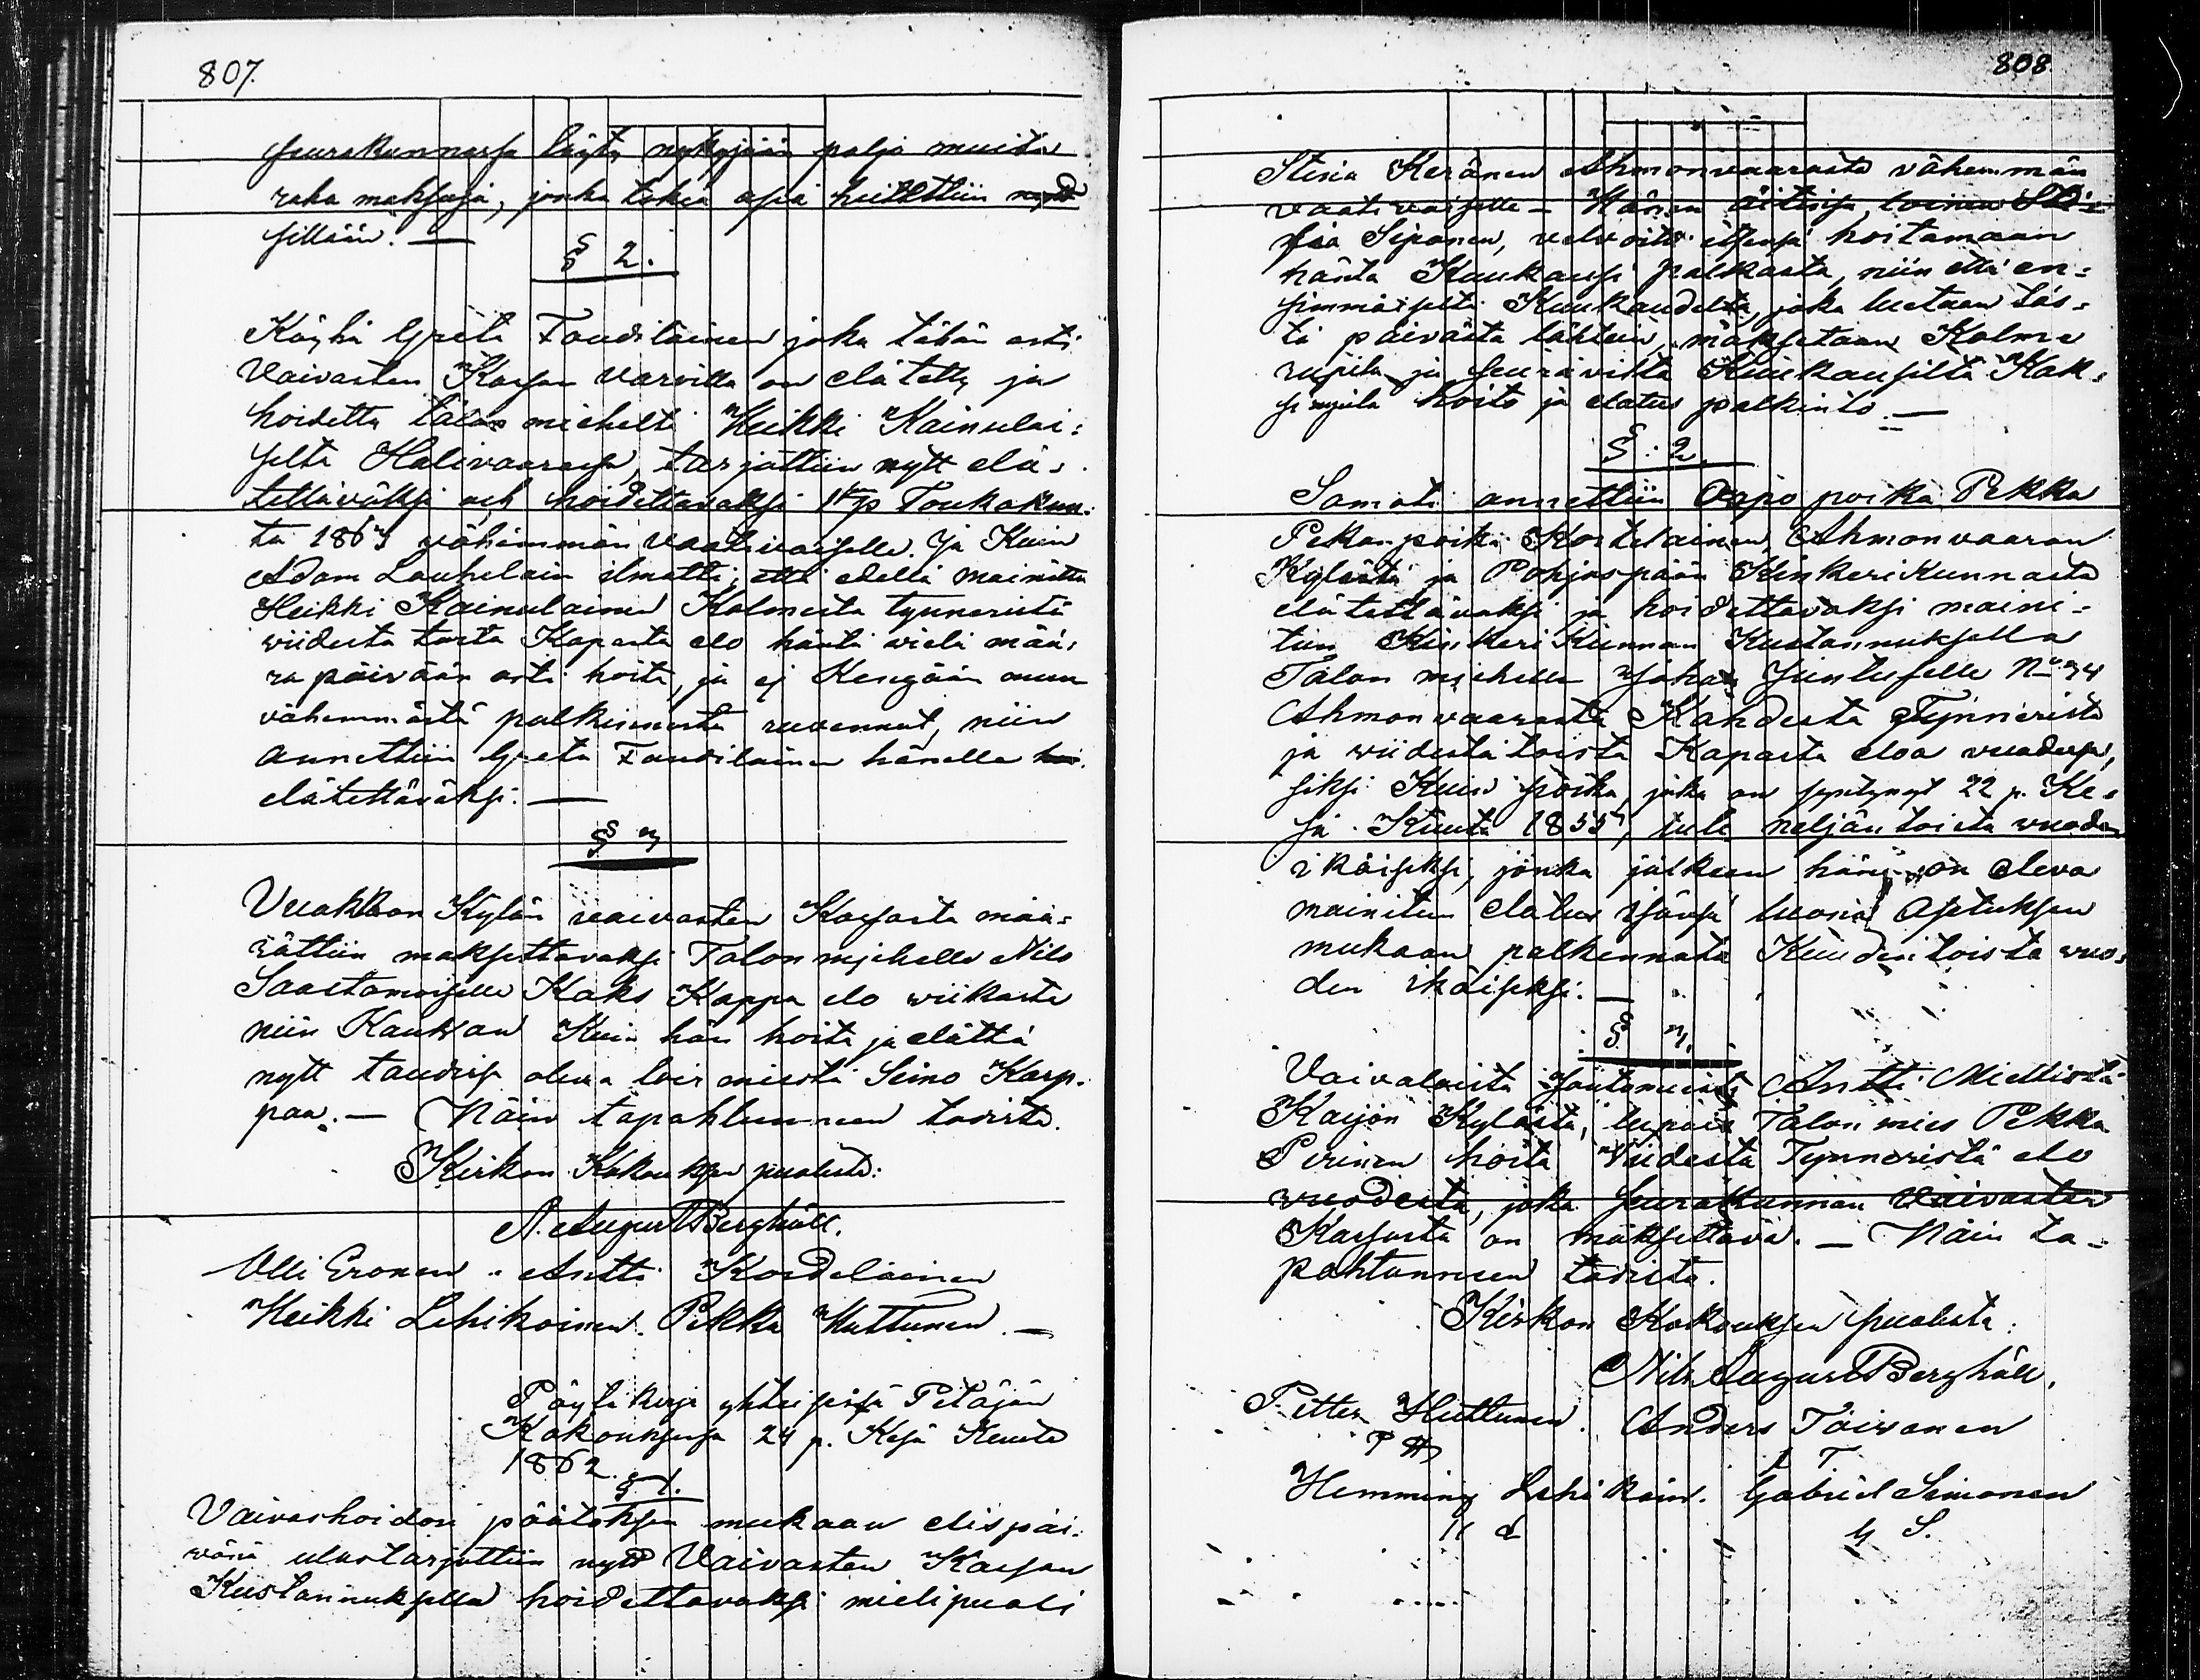 807.
seurakunnassa löyty nykyjään paljo muita
raha maksuja, jonka tähä asia heitettiin nytt
sillään. —
§ 2.
Köyhä Greta Tauvilainen joka tähän asti
Vaivasten Kassan varoilla on elätetty ja
hoidettu talon mieheltä Heikki Kainulai-
selta Halivaarassa, tarjottiin nytt elä-
tettäväksi och hoidettavaksi 1 p Toukokuu-
ta 1863 vähimmän vaativaiselle. Ja Kuin
Adam Laukelain ilmoitti, että edellä mainittu
Heikki Kainulainen Kolmesta tynneristä
viidestä toista Kapasta elo häntä vielä mää-
rä päivään asti hoita, ja ej Kengään muu
vähemmästä palkinnosta ruvennut, niin
annettiin Greta Tauvilainen hänelle
elätettäväksi. —
§ 3
Vuokkon Kylän vaivasten Kassasta mää-
rättiin maksettavaksi Talon miehelle Nils
Saastamoiselle Kaks Kappa elo viikosta
niin Kauvan Kuin hän hoita ja elättä
nytt taudissa oleva lois miestä Simo Karp-
paa. — Näin tapahtuneen todista.
Kirkon Kokouksen puolesta:
N. August Berghäll.
Olli Eronen. Antti Kordelainen
Heikki Lehikoinen. Pekka Huttunen. —
Pöytä kirja yhteisessä Pitäjän
Kokouksessa 24 p. Kesä Kuuta
1862.
§ 1.
Vaivashoidon päätöksen mukaan elis päi-
vänä ulostarjottiin nytt Vaivasten Kassan
Kustannuksella hoidettavaksi mielipuoli
808.
Stina Keränen Ahmonvaarasta vähemmän
vaativaiselle — Hänen äitinsä, loinen Sti-
na Siponen, velvoitti itsensä hoitamaan
häntä Kuukausi palkasta, niin että en-
simmäiseltä Kuukaudelta, joka luetaan täs-
tä päivästä lähtein, maksetaan Kolme
rupla ja seuravista Kuukausilta Kak-
si rupla hoito ja elatus palkinto. —
§ : 2.
Samati annettiin Orpo poika Pekka
Pekanpoika Kortelainen Ahmonvaaran
Kylästä ja Pohjaspään Kinkerikunnasta
elätettäväksi ja hoidettavaksi maini-
tun Kinkeri Kunnan Kustannuksella
Talon miehelle Johan Juntuselle No 34
Ahmonvaarasta Kahdesta Tynneristä
ja viidestä toista Kapasta eloa vuodessa,
siksi Kuin poika, joka on syntynyt 22 p. Ke-
sä Kuuta 1855, tule neljäntoista vuoden
ikäiseksi, jonka jälkeen hän on oleva
mainitun elatus isänsä luona Asetuksen
mukaan palkennata Kuudentoista vuo-
den ikäiseksi. —
§ 3.
Vaivaloista Antti Miettistä
Karjon Kylästä, lupais Talon mies Pekka
Pirinen hoita Viidestä Tynneristä elo
vuodesta, joka seurakunnan Vaivasten
Kassasta on maksettava. — Näin ta-
pahtunneen todista.
Kirkon Kokouksen puolesta:
Nils August Berghäll.
Petter Huttunen. Anders Toivanen
P H
A T
Hemming Lehikoin. Gabriel Simonen
H L
G S.